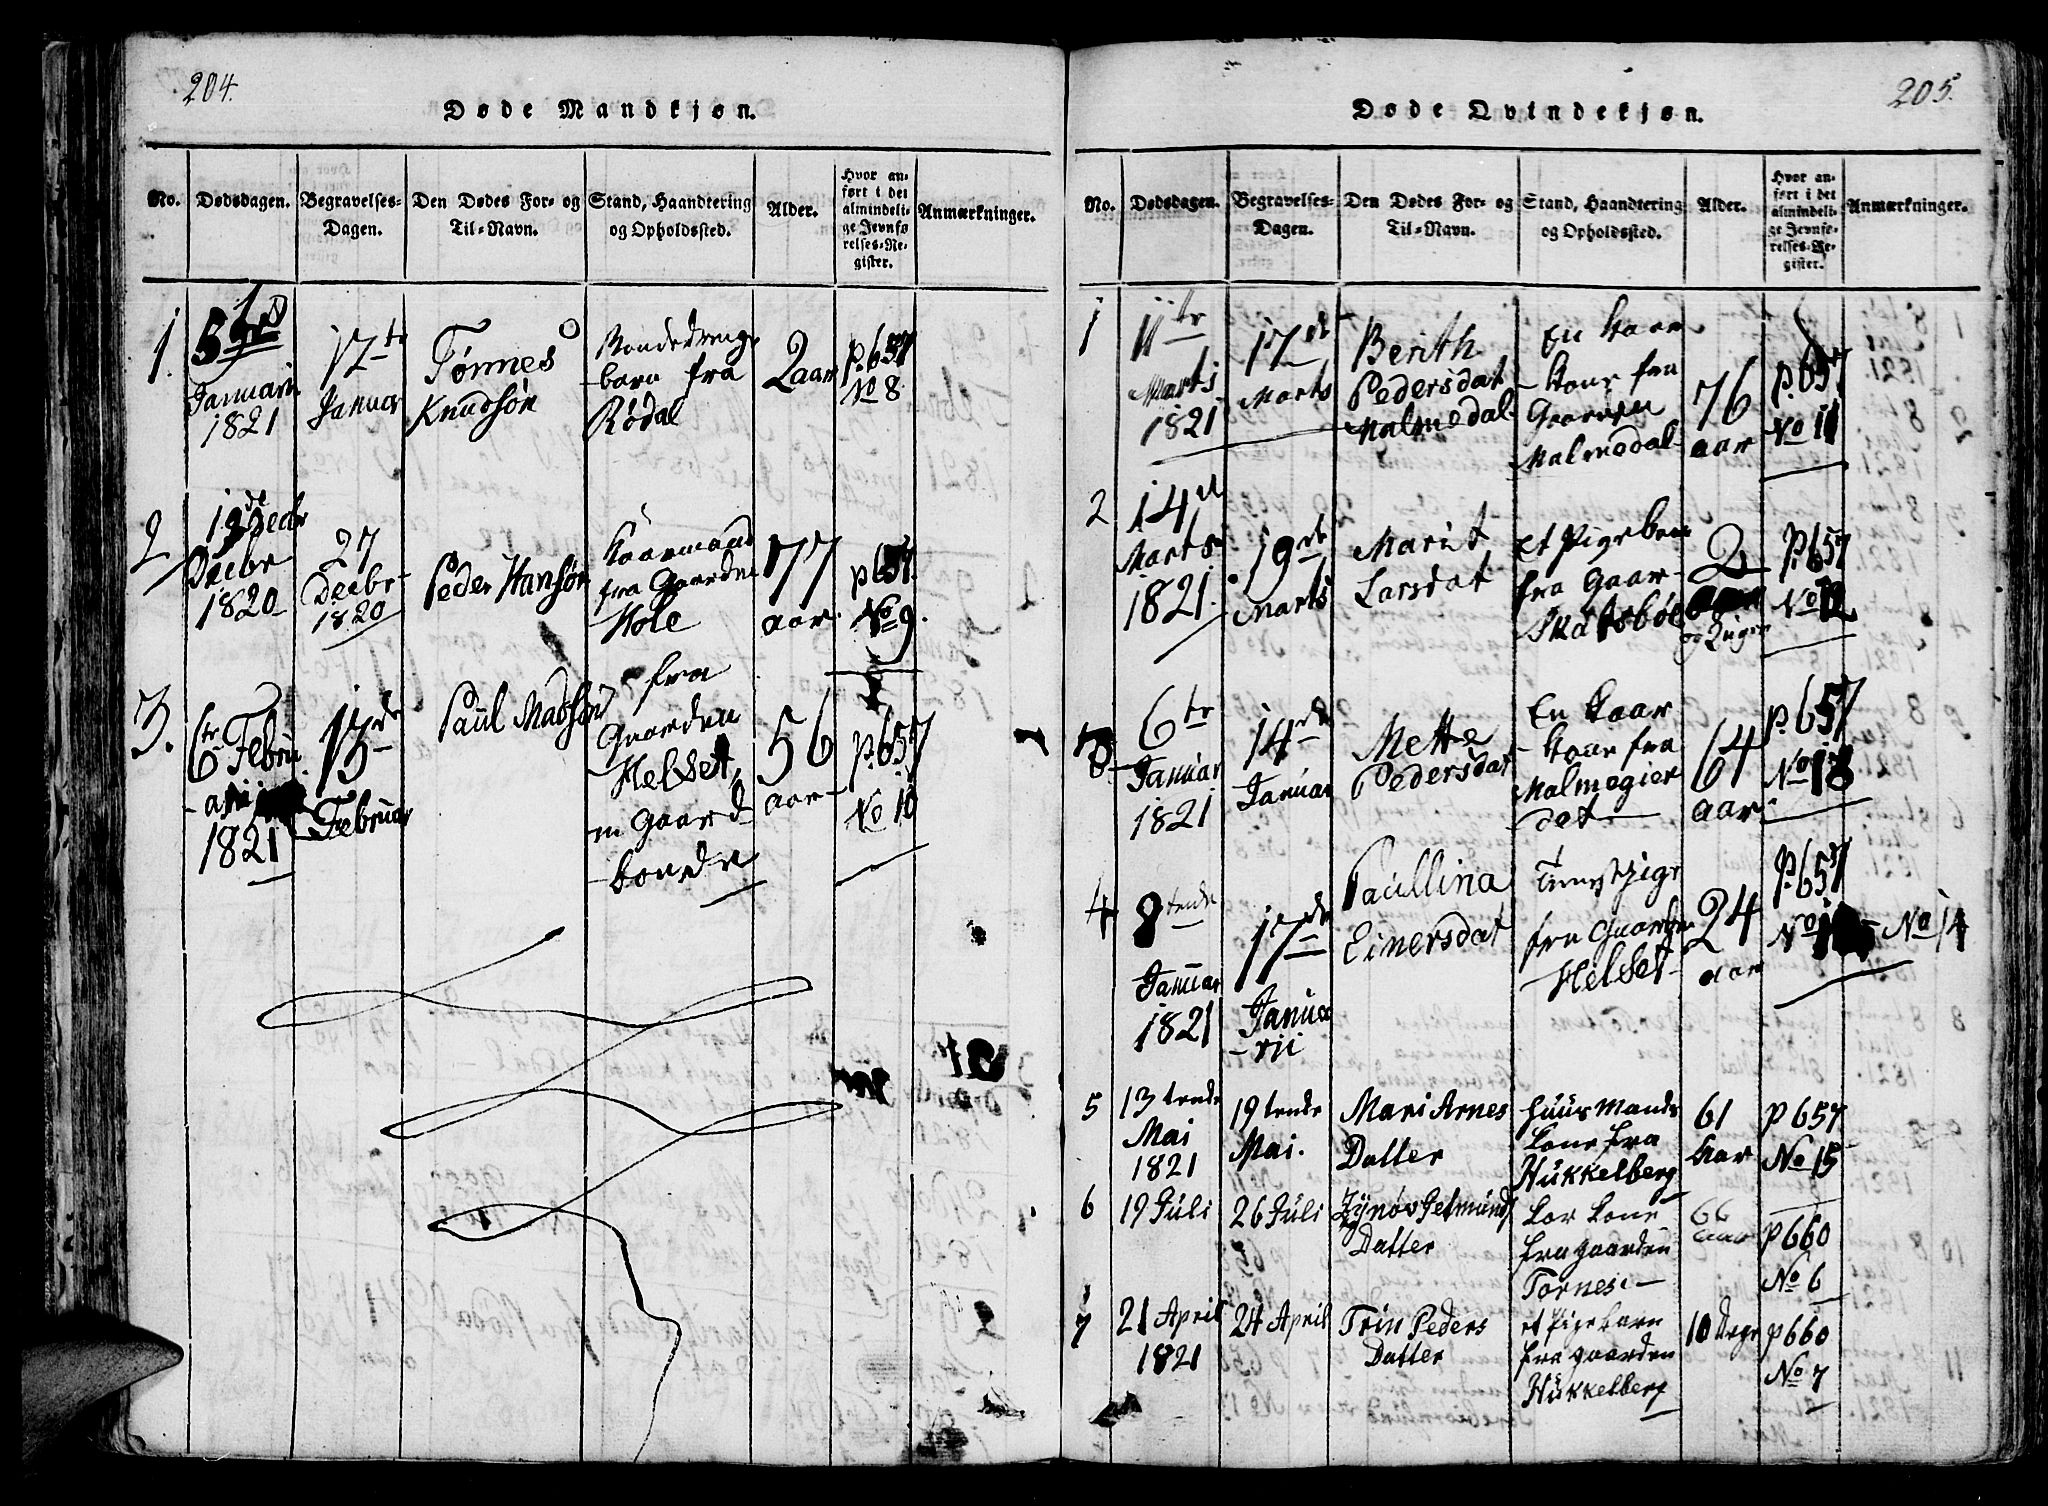 204.
Døde Mandkjøn.
No.
Dødsdagen.
Begravelses-
Dagen.
Den Dødes For- og
Til-Navn.
Stand, Haandtering
og Opholdssted.
Alder.
Hvor an-
ført i det
almindeli-
ge Jevnfø
relses-Re-
gister.
Anmærkninger.
1.
5te
Januari
1821
17te
Januar
Tønnes
Knudsøn
Bondedrenge
barn fra
Rødal
2 aar
p. 657
No 8.
2
19de
Decbr
1820
27
Decbr
1820
Peder Hansøn
Kaarmand
fra Gaarden
Hole
77
aar
p. 657.
No 9.
3.
6te Febru
arii
1821
13de
Februar
Paul Madsøn
fra
Gaarden
Helset,
en Gaard
bonde
56
aar
p. 657
No 10
205.
Døde Qvindekjøn.
No.
Dødsdagen.
Begravelses-
Dagen.
Den Dødes For- og
Til-Navn.
Stand, Haandtering
og Opholdssted.
Alder.
Hvor an-
ført i det
almindeli-
ge Jevnfø-
relses-Re-
gister.
Anmærkninger.
1
11te
Marts
1821
17de
Marts
Berith
Pedersdat
Malmedal
En Kaar
kone fra
Gaarden
Malmedal
76
aar
p. 657
No 11
2
14de
Marts
1821.
19de
Marts
Marit
Larsdat
Et Pigebarn
fra Gaar
Skatsbøe
2
p. 657
No 12
3
6te
Januar
1821
14de
Januar
Mette
Pedersdat
En Kaar
kone fra
Malmegier
det
64
aar
p. 657
No 13
4
8tende
Januar
1821
17de
Janua
rii
Paullina
Einersdat
Tienestpige
fra Gaarden
Helset
24
aar
p. 657
No 1
No 14
5
13tende
Mai
1821
19tende
Mai.
Mari Arnes
Datter
Huusmands
kone fra
Hukkelberg
61
Aar
p 657
No 15
6
19 Juli
26 Juli
Datter
Kar kone
fra gaarden
Tornes
66
aar
p 660
No 6
7
21 April
1821
24 April
Trin Peders
Datter
et Pigebarn
fra gaarden
Hukkelberg
10 Dage
p 660
No 7